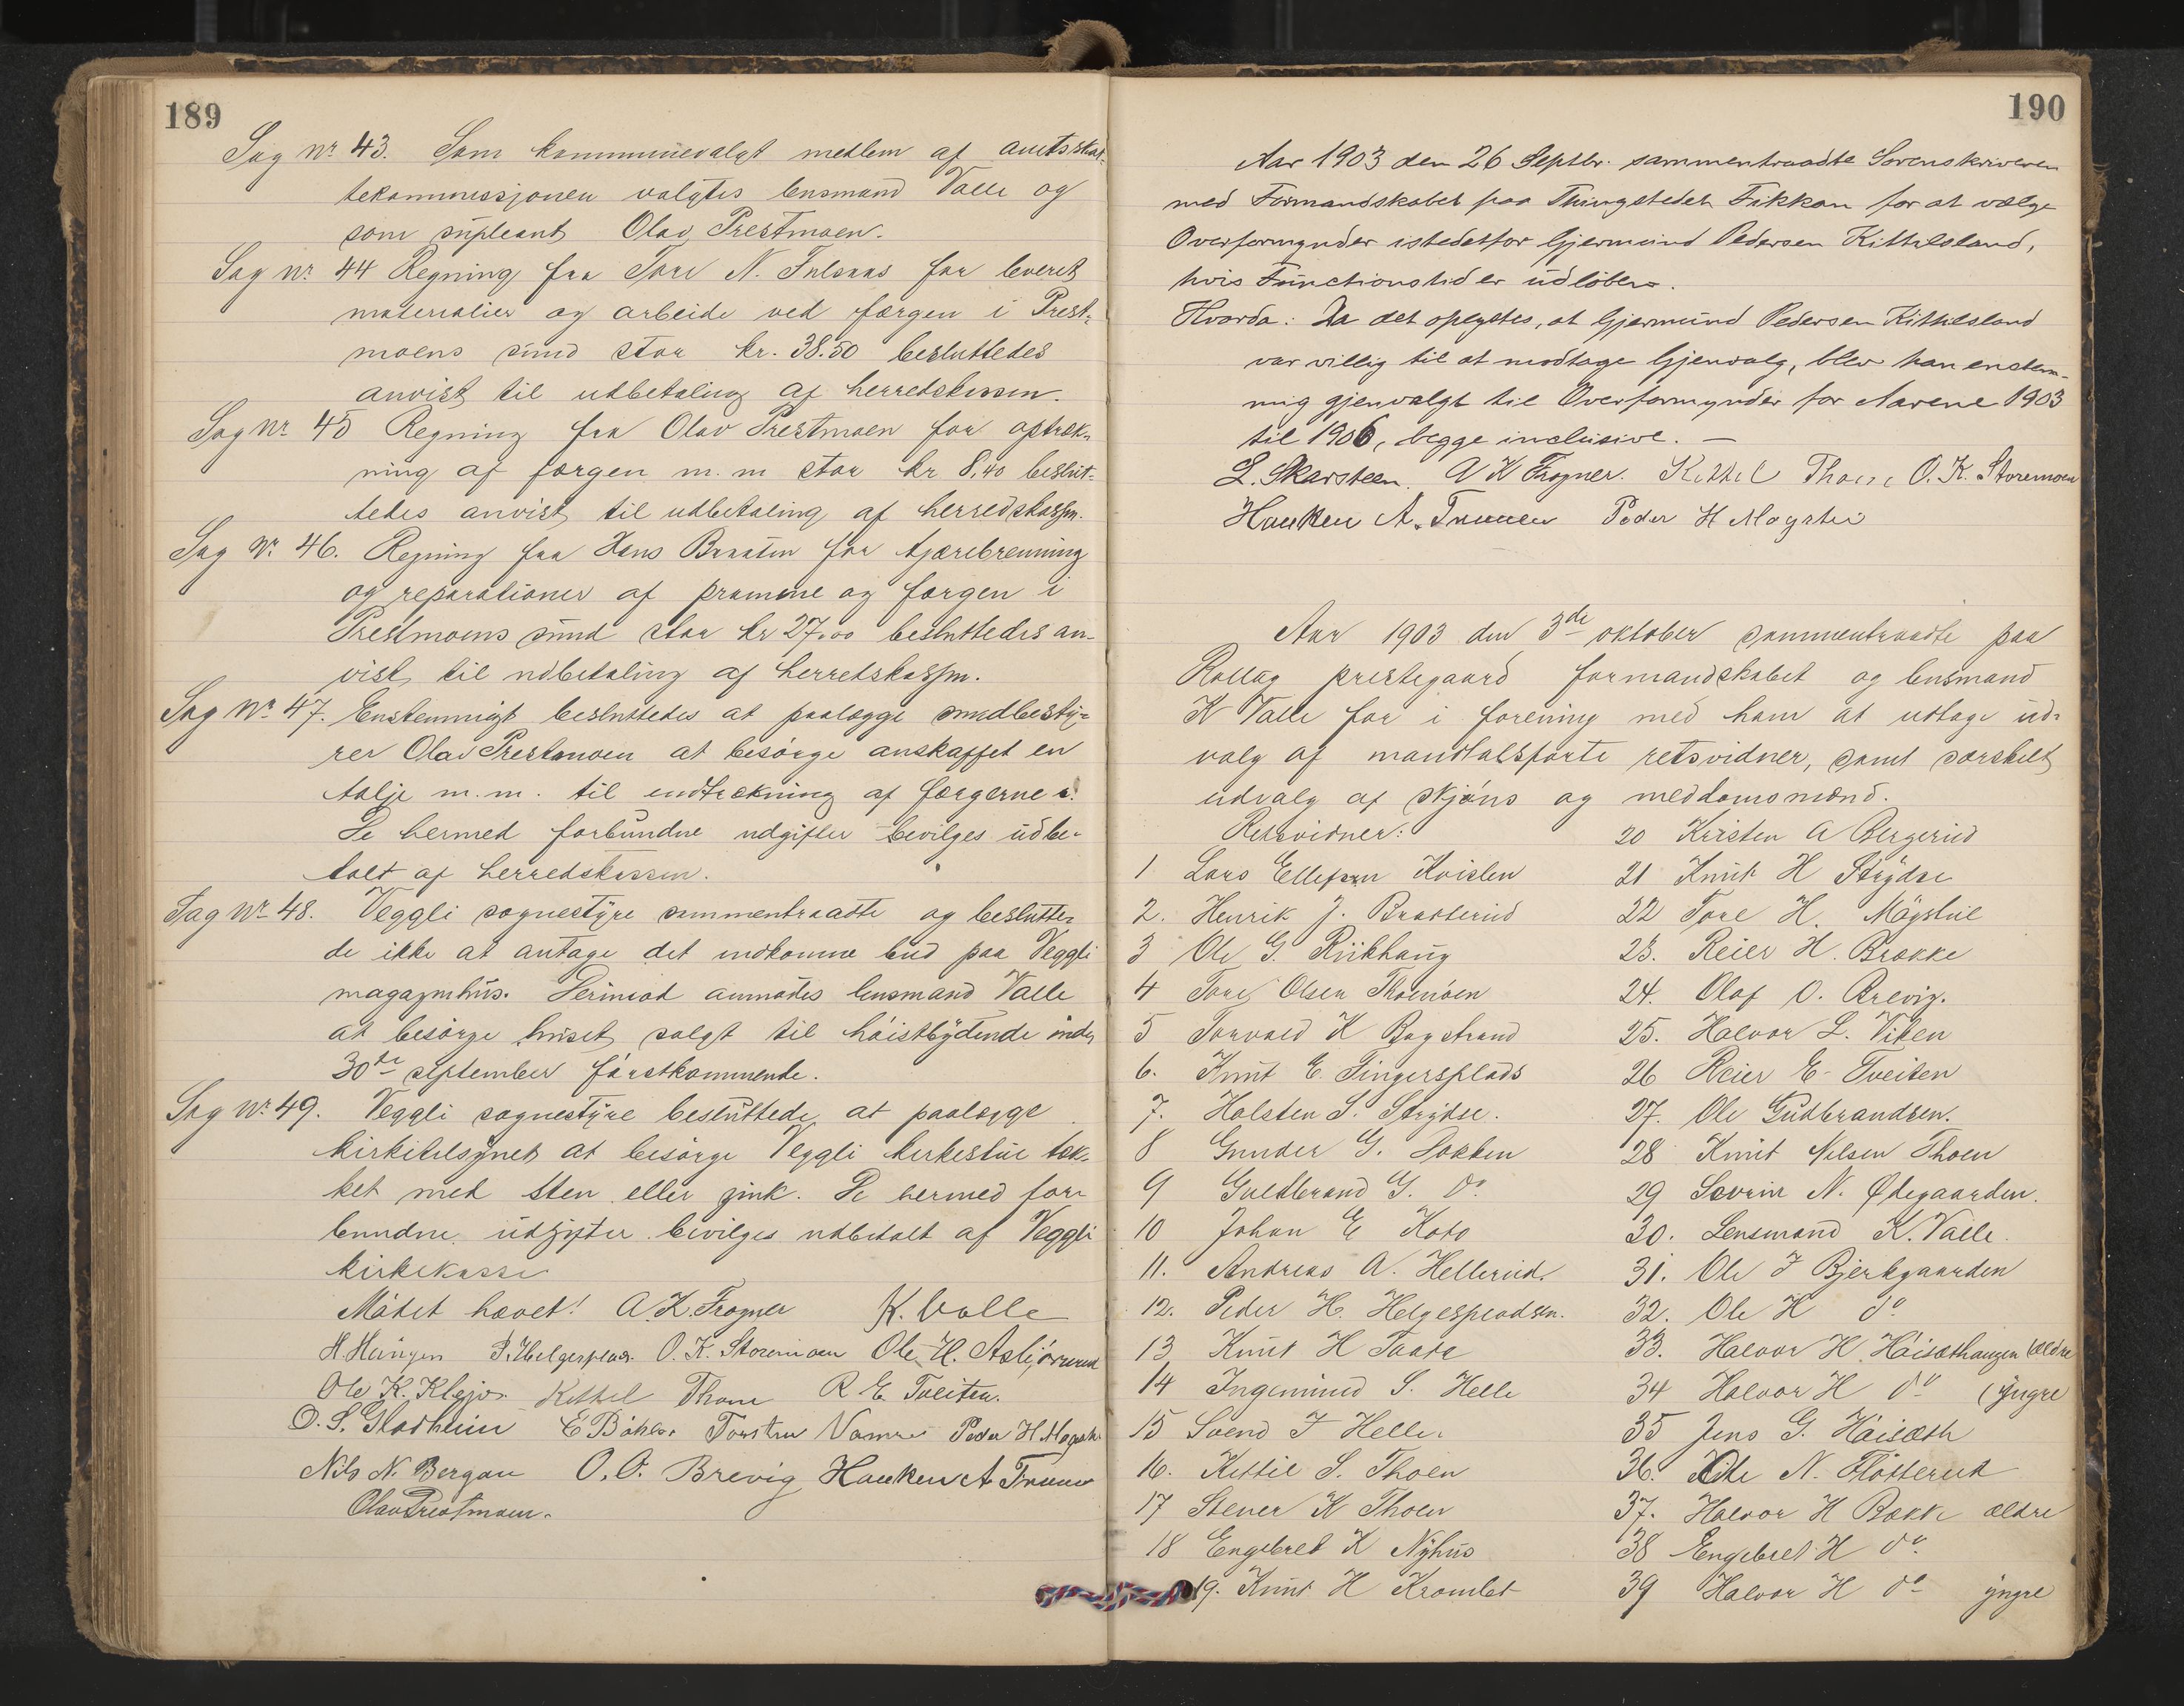 189
Sag Nr 43. Som kommunevalgt medlem af amtsskat-
tekommissjonen valgtes lensmand Valle og
som supleant Olav Prestmoen.
Sag nr. 44 Regning fra Tore N. for leveret
materialier og arbeide ved færgen i Prest-
moens sund stor kr. 38.50 besluttedes
anvist til udbetaling af herredskassen.
Sag Nr. 45 Regning fra Olav Prestmoen for optræk-
ning af færgen m. m stor kr 8,40 beslut-
tedes anvist til udbetaling af herredskassen.
Sag Nr. 46. Regning fra Hans Braaten for tjærebrenning
og reparationer af pramme og færgen i
Prestmoens sund stor kr 27,00 besluttedes an-
vist til udbetaling af herredskassen.
Sag Nr. 47. Enstemmigt besluttedes at paalægge sundbesty-
rer Olav Prestmoen at besörge anskaffet en
talje m.m. til indtrækning af færgerne.
De hermed forbundne udgifter bevilges udbe-
talt af herredskassen.
Sag Nr. 48. Veggli sognestyre sammentraadte og beslutte-
de ikke at antage det indkomne bud paa Veggli
magazinhus. Derimod anmodes lensmand Valle
at besörge huset solgt til höistbydende inden
30te september förstkommende.
Sag Nr. 49. Veggli sognestyre besluttede at paalægge
kirketilsynet at besörge Veggli kirkestue tæk-
ket med sten eller zink. De hermed for-
bundne udgifter bevilges udbetalt af Veggli
kirkekasse
Mödet hævet! A. K. Frogner K. Valle
O. K. Storemoen Ole H.
Ole K. Kittil Thoen R E. Tveiten.
O. S. Gladheim Torsten Peder H
Nils N. Bergan O. O. Brevig Haaken A
Olav Prestmoen.
190
Aar 1903 den 26 Septbr. sammentraadte Sorenskriveren
med Formandskabet paa Thingstedet Fikkan for at vælge
Overformynder istedetfor Gjermund Pedersen Kittelsland,
hvis Functionstid er udløben.
Hvorda: Da det oplystes, at Gjermund Pedersen Kittelsland
var villig til at modtage Gjenvalg, blev han enstem-
mig gjenvalgt til Overformynder for Aarene 1903
til 1906, begge inclusive. —
L. Skarsteen. A K Frogner. Kittil Thoen O. K. Storemoen
Haaken A. Peder H
Aar 1903 den 3de oktober sammentraadte paa
Rollag prestegaard formandskabet og lensmand
K Valle for i forening med ham at udtage ud-
valg af mandtalsførte retsvidner, samt særskilt
udvalg af skjöns og meddomsmænd.
Retsvidner:
1 Lars Ellefsen Kvislen
2. Henrik J. Braaterud
3 Ole G.
4 Tore Olsen
5 Torvald K Bagstrand
6. Knut E. Fingersplads
7. Halsten S. Strydse.
8 Gunder G. Bakken
9 Guldbrand G. do
10 Johan E
11. Andreas A. Hellerud.
12. Peder H. Helgespladsen.
13 Knut H
14 Ingemund S. Helle
15 Svend F Helle
16. Kittil S. Thoen
17 Stener K Thoen
18 Engebret K Nyhus
19. Knut H
20 Kristen A Bergerud
21 Knut H Strydse
22 Tore H.
23. Reier H. Brække
24. Olaf O. Brevig.
25. Halvor L. Viken
26 Reier E. Tveiten
27. Ole Gudbrandsen.
28 Knut Nilsen Thoen
29 Severin N. Ødegaarden.
30. Lensmand K. Valle.
31. Ole J Bjerkgaarden
32. Ole H do
33. Halvor H. Höisæthaugen (ældre
34 Halvor H do (yngre
35 Jens G. Höisæth
36. Ole N. Flötterud
37. Halvor H Bakke ældre
38 Engebret H do
39 Halvor H do yngre